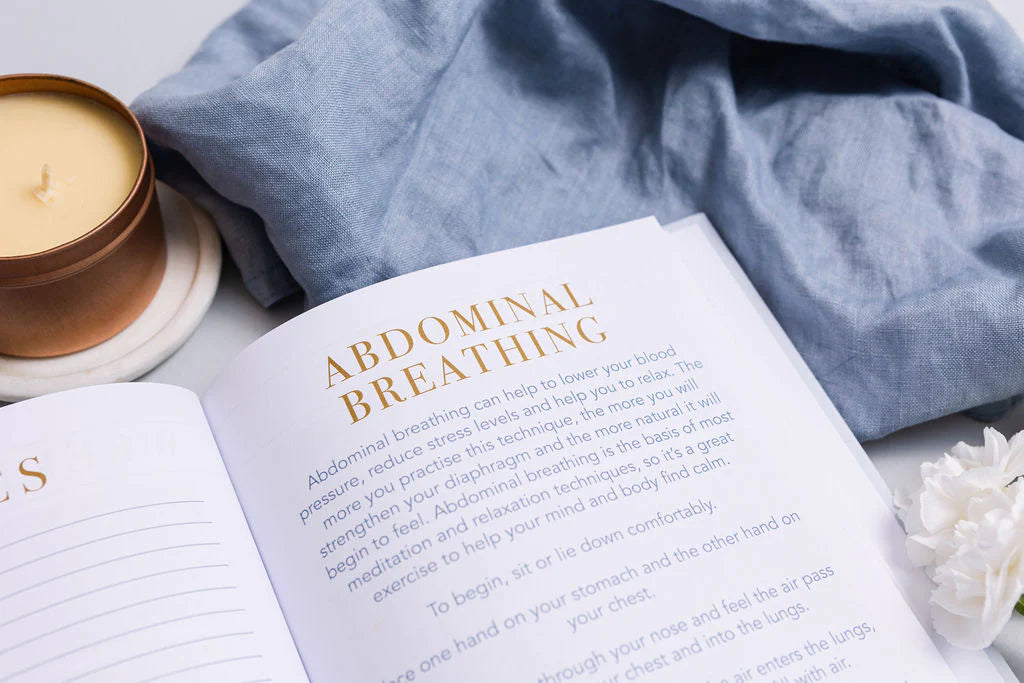 ES
ABDOMINAL
BREATHING
Abdominal breathing can help to lower your blood
pressure, reduce stress levels and help you to relax. The
more you practise this technique, the more you will
strengthen your diaphragm and the more natural it will
begin to feel. Abdominal breathing is the basis of most
meditation and relaxation techniques, so it's a great
exercise to help your mind and body find calm.
To begin, sit or lie down comfortably.
one hand on your stomach and the other hand on
your chest.
through your nose and feel the air pass
your chest and into the lungs.
air enters the lungs,
with air.